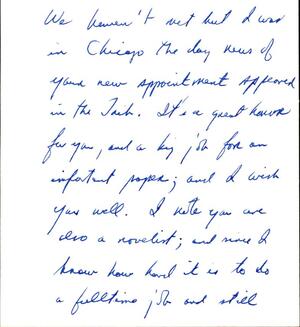 We haven't met but I was
in Chicago the day news of
your new appointment appeared
in the Trib. It's a great honor
for you, and a big job for an
important paper; and I wish
you well. I note you are
also a novelist; and since I
know how hard it is to do
a fulltime job and still